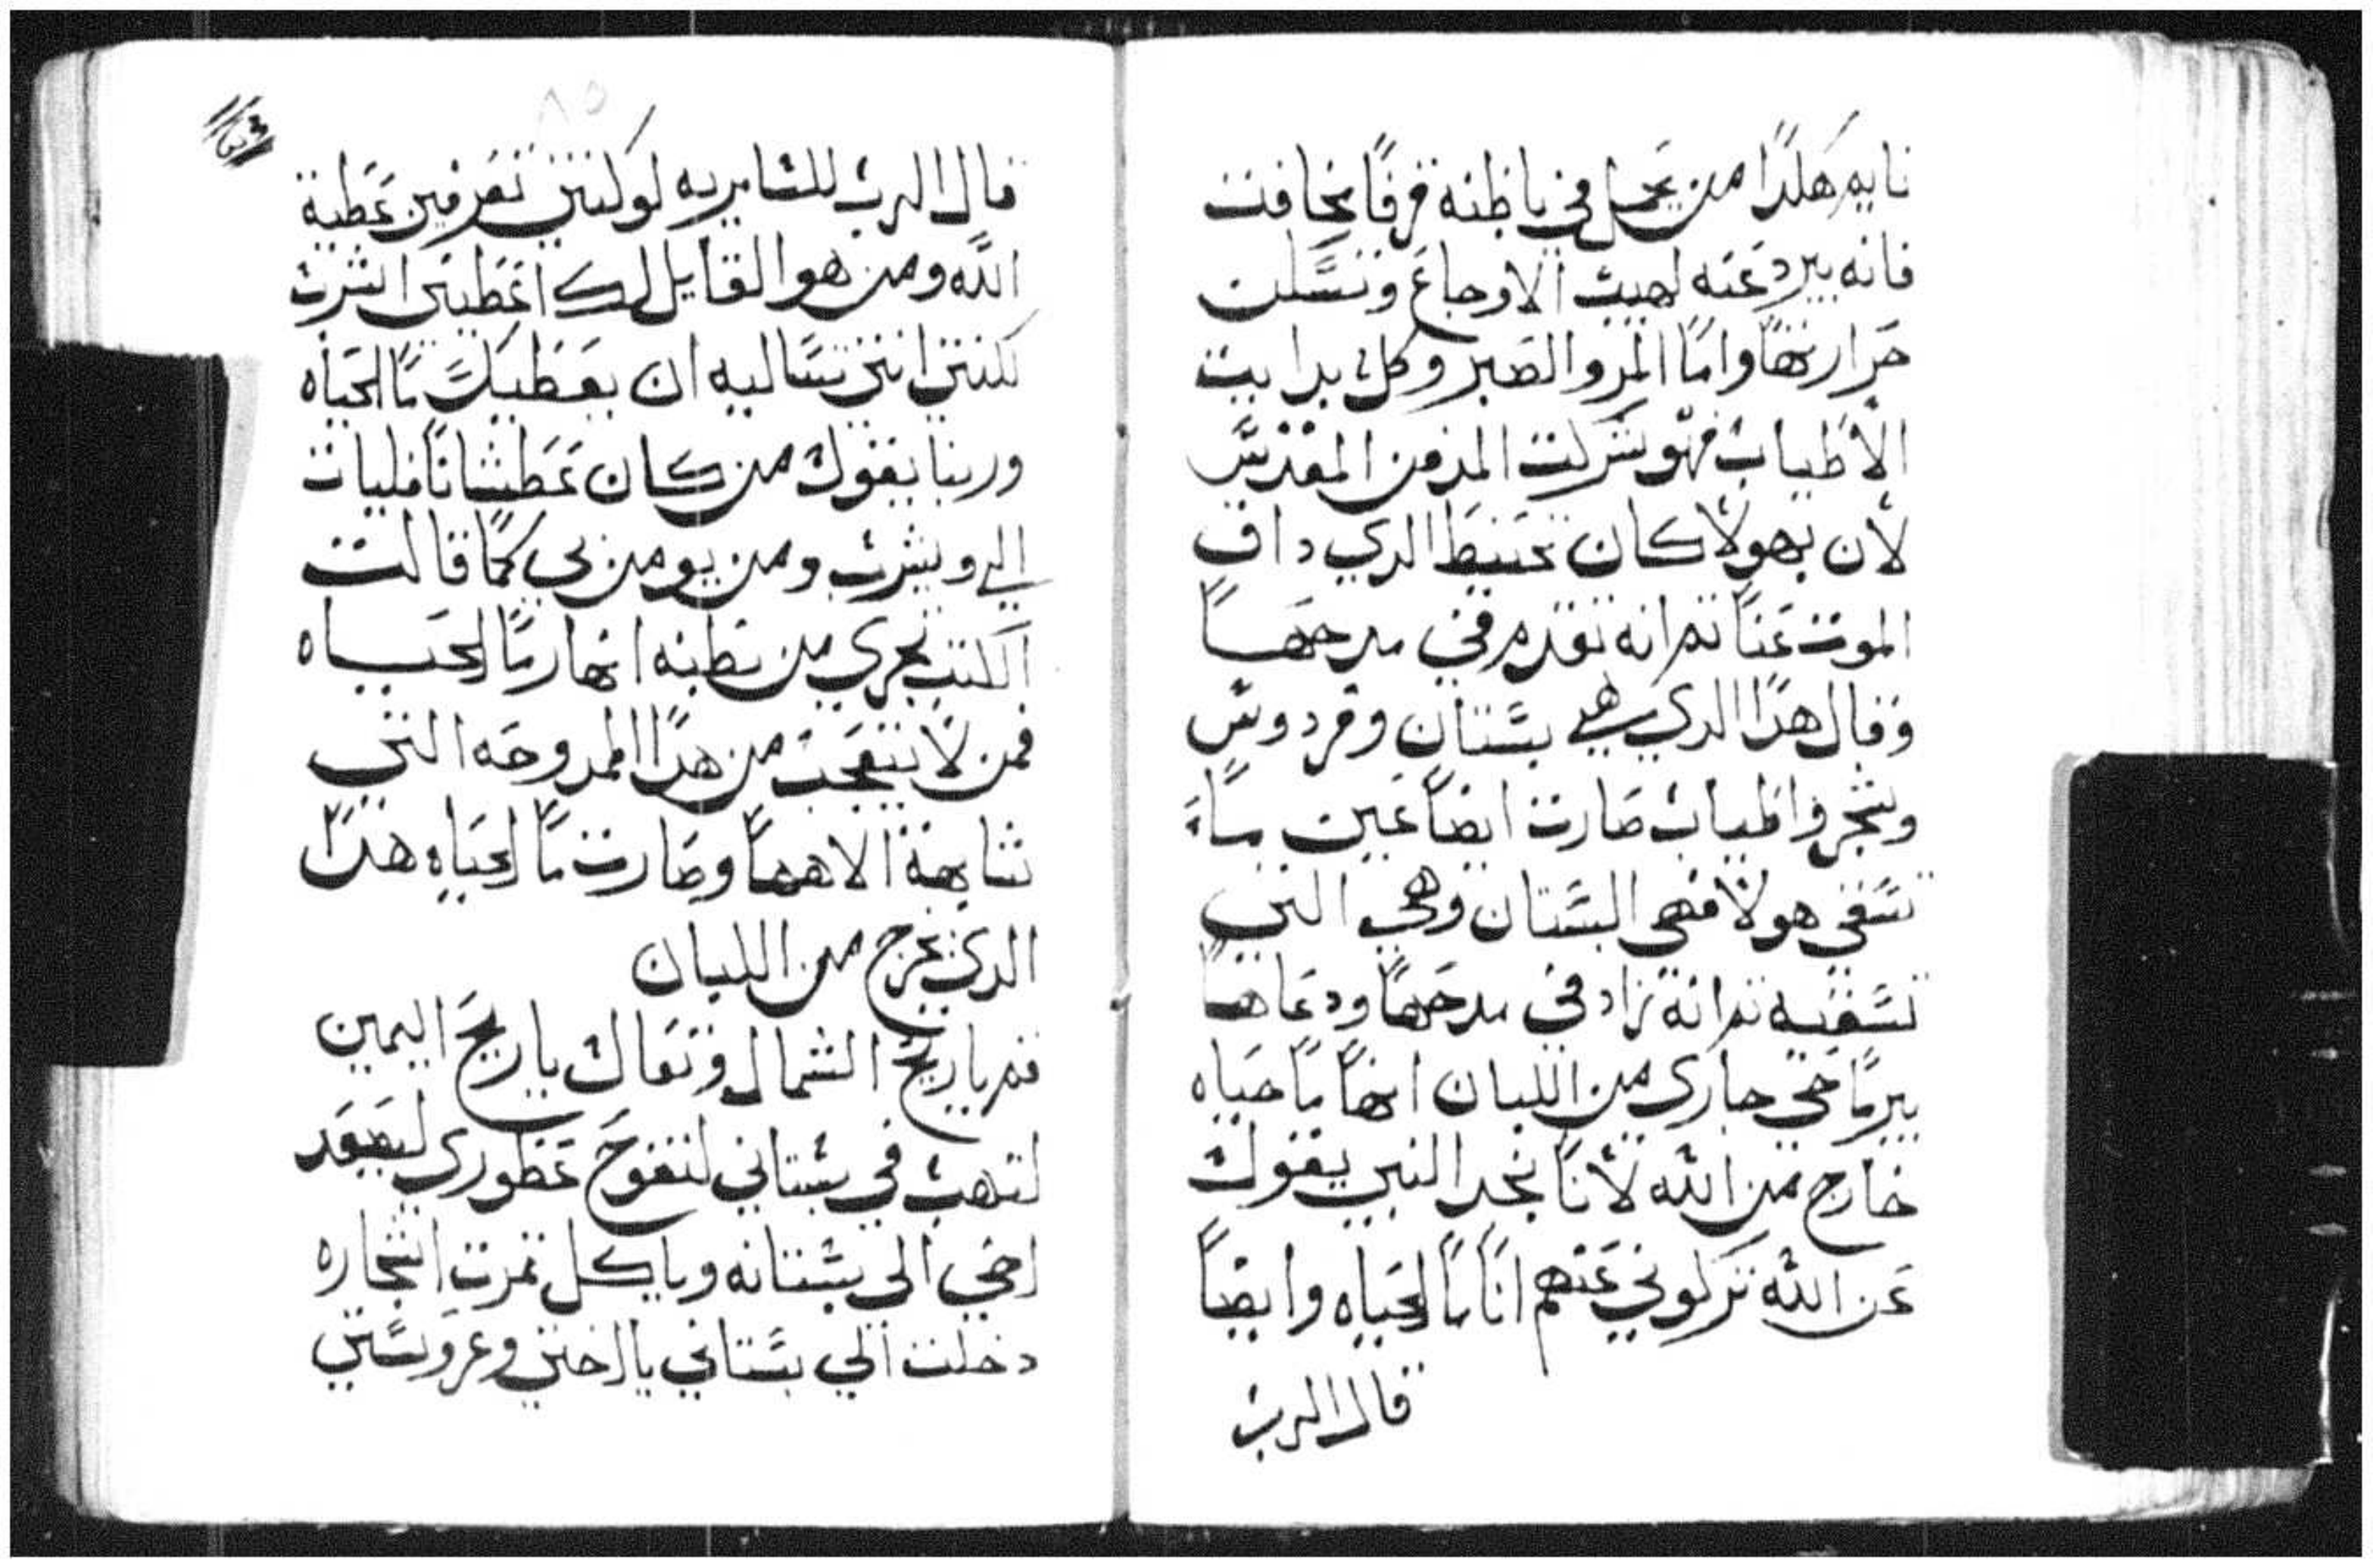 نايه هكذا من يجعل في باطنه فرقا مخافت
فانه يبرد عنه لهيب الاوجاع وتسكن
حرارتها واما المر والصبر وكل بدايت
الأطياب فهو شركت المدفن المقدس
لأن بهولا كان تحنيط الدي داق
الموت عنا تم انه تقدم في مدحها
وقال هدا الدي هي بستان وفردوس
وشجر واطياب صارت ايضا عين ماء
تسقي هولا فهي البستان وهي التي
تسقيه تم انه زاد في مدحها ودعاها
بير ما حي جاري من اللبان انها ما حياه
خارج من الله لأنا نجد النبي يقول
عن الله تركوني عنهم انا ما الحياه وايضا
قال الرب
قال الرب للسامريه لو كنتي تعرفين عطية
الله ومن هو القايل لك اعطيني اشرب
لكنتي انتي تساليه ان يعطيك ما الحياه
وربنا يقول من كان عطشانا فليات
الي ويشرب ومن يومن بي كما قالت
الكتب تجري من بطنه انهار ما الحياه
فمن لا يتعجب من هدا الممدوحه التي
تشابهة الاهها وصارت ما الحياه هدا
الدي يخرج من اللبان
قم يا ريح الشمال وتعال يا ريح اليمين
لتهب في بستاني لتفوح عطوري ليصعد
اخي الي بستانه وياكل تمرت اشجاره
دخلت الي بستاني يا اختي وعروستي